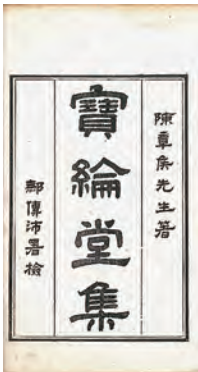 陳章侯先生著
寶綸堂集
鄒傳沛署檢